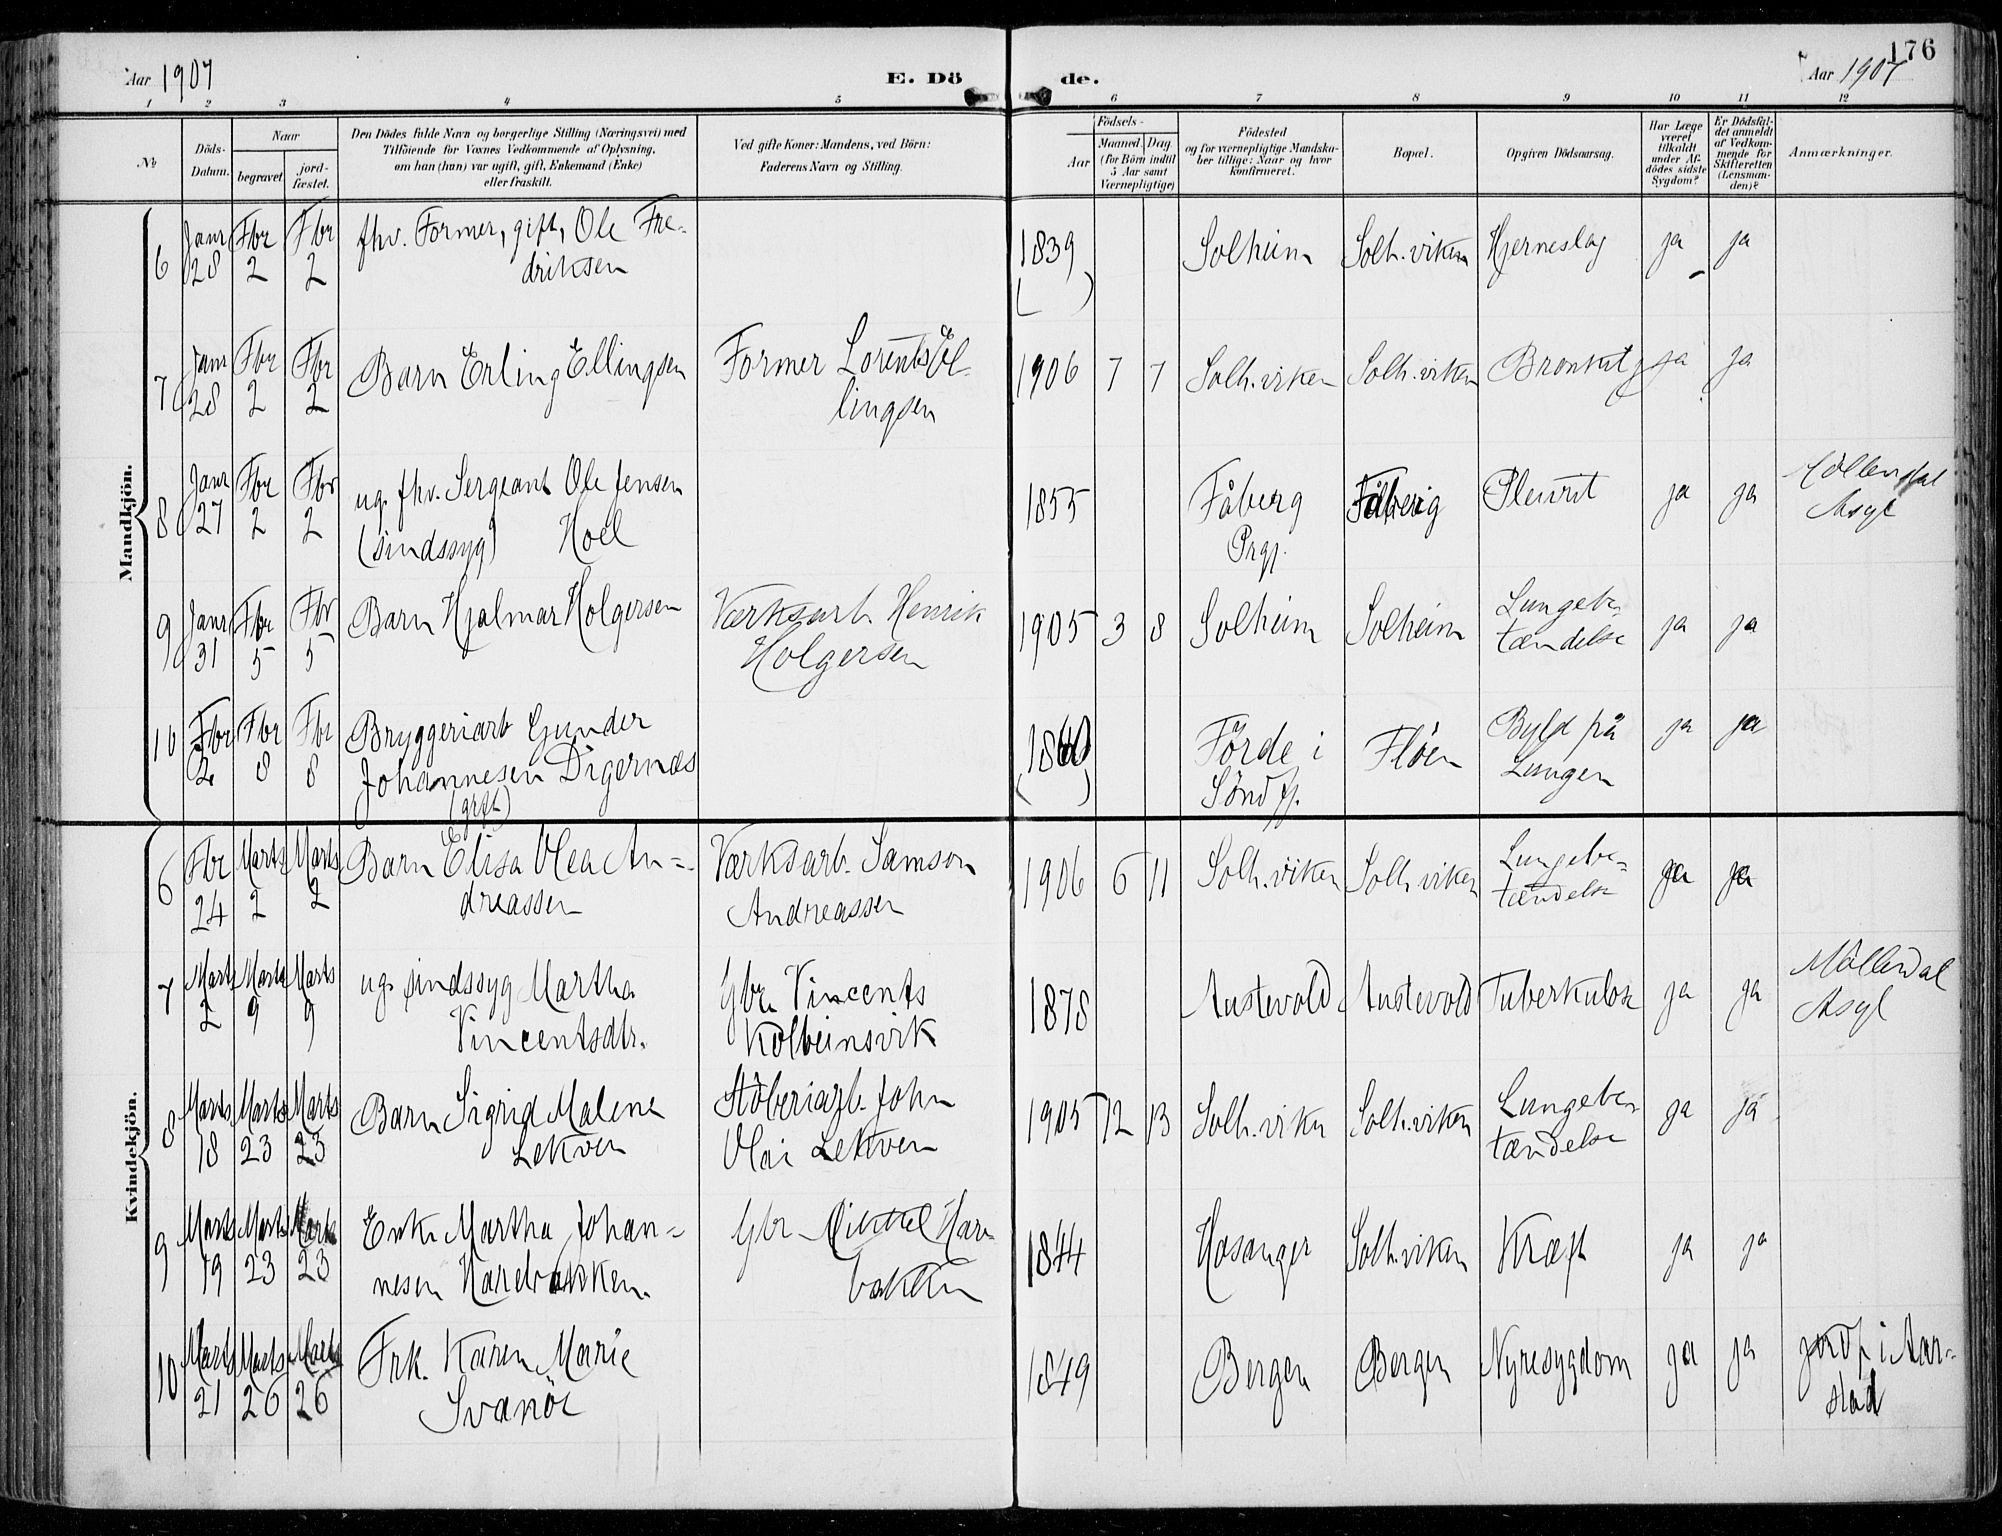 176
Aar 1907
E. Dö de.
Aar 1907
1 2 3 4 5 6 7 8 9 10 11 12
No
Döds-Datum.
Naar
begravet
jord-fæstet.
Den Dödes fulde Navn og borgerlige Stilling (Næringsvei) med
Tilföiende for Voxnes Vedkommende af Oplysning,
om han (hun) var ugift, gift, Enkemand (Enke)
eller fraskilt.
Ved gifte Koner: Mandens, ved Börn:
Faderens Navn og Stilling.
Födsels-
Aar
Maaned. Dag.
(for Börn indtil
5 Aar samt
Værnepligtige)
Födested
og for værnepligtige Mandska-
ber tillige: Naar og hvor
konfirmeret.
Bopæl.
Opgiven Dödsaarsag.
Har Læge
været
tilkaldt
under Af-
dödes sidste
Sygdom?
Er Dödsfal-
det anmeldt
af Vedkom-
mende for
Skifteretten
(Lensman-
den)?
Anmærkninger.
Mandkjön.
6 Janr 28 Fbr 2 Fbr 2 fhv. Former, gift, Ole Fre-
driksen
1839 Solheim Solh.viken Hjerneslag ja ja
( )
7 Janr 28 Fbr 2 Fbr 2 Barn Erling Ellingsen Former Lorents El-
lingsen
1906 7 7 Solh.viken Solh.viken Bronkit ja ja
8 Janr 27 Fbr 2 Fbr 2 ug. fhv. Sergeant Ole Jensen
(sindssyg) Hoel
1855 Fåberg
Prgj.
Fåberg Pleurit ja ja Möllendal
Asyl
9 Janr 31 Fbr 5 Fbr 5 Barn Hjalmar Holgersen Værksarb. Henrik
Holgersen
1905 3 8 Solheim Solheim Lungebe-
tændelse ja ja
10 Fbr 2 Fbr 8 Fbr 8 Bryggeriarb Gunder
Johannesen Digernæs
(gift)
Förde i
Söndfj.
Flöen Byld på
Lungen ja ja
Kvindekjön.
6 Fbr 24 Marts 2 Marts 2 Barn Elisa Olea An-
dreassen
Værksarb. Samson
Andreassen
1906 6 11 Solh.viken Solh.viken Lungebe-
tændelse ja ja
7 Marts 2 Marts 9 Marts 9 ug. sindssyg Martha
Vincentsdtr.
Gbr. Vincents
Kolbeinsvik
1878 Austevold Austevold Tuberkulose ja ja Möllendal
Asyl
8 Marts 18 Marts 23 Marts 23 Barn Sigrid Malene
Lekven
Stöberiarb. John
Olai Lekven
1905 12 13 Solh.viken Solh.viken Lungebe-
tændelse ja ja
9 Marts 19 Marts 23 Marts 23 Enke Martha Johan-
nesen Harebakken.
Gbr. Mikkel Hare-
bakken
1844 Hosanger Solh.viken Kræft ja ja
10 Marts 21 Marts 26 Marts 26 Frk. Karen Marie
Svanöe
1849 Bergen Bergen Nyresygdom ja ja jordf. i Aar-
stad